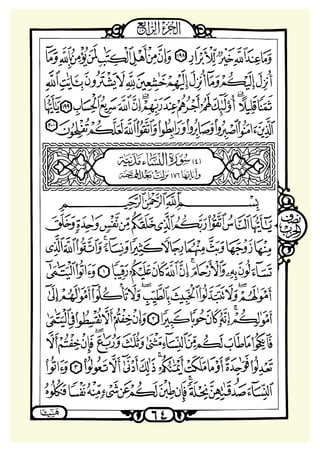 الجزء الرابع
وَمَا عِندَ ٱللَّهِ خَيْرٌ لِّلْأَبْرَارِ ١٩٨ وَإِنَّ مِنْ أَهْلِ ٱلْكِتَٰبِ لَمَن يُؤْمِنُ بِٱللَّهِ وَمَآ
أُنزِلَ إِلَيْكُمْ وَمَآ أُنزِلَ إِلَيْهِمْ خَٰشِعِينَ لِلَّهِ لَا يَشْتَرُونَ بِـَٔايَٰتِ ٱللَّهِ
ثَمَنًا قَلِيلًا أُو۟لَٰٓئِكَ لَهُمْ أَجْرُهُمْ عِندَ رَبِّهِمْ إِنَّ ٱللَّهَ سَرِيعُ ٱلْحِسَابِ ١٩٩ يَٰٓأَيُّهَا
ٱلَّذِينَ ءَامَنُوا۟ ٱصْبِرُوا۟ وَصَابِرُوا۟ وَرَابِطُوا۟ وَٱتَّقُوا۟ ٱللَّهَ لَعَلَّكُمْ تُفْلِحُونَ ٢٠٠
(٤) سُورَةُ النِّسَاءِ مَدَنِيَّة
وآياتها ١٧٦ نزلت بعد الممتحنة
بِسْمِ ٱللَّهِ ٱلرَّحْمَٰنِ ٱلرَّحِيمِ
يَٰٓأَيُّهَا ٱلنَّاسُ ٱتَّقُوا۟ رَبَّكُمُ ٱلَّذِى خَلَقَكُم مِّن نَّفْسٍ وَٰحِدَةٍ وَخَلَقَ
مِنْهَا زَوْجَهَا وَبَثَّ مِنْهُمَا رِجَالًا كَثِيرًا وَنِسَآءً وَٱتَّقُوا۟ ٱللَّهَ ٱلَّذِى
تَسَآءَلُونَ بِهِۦ وَٱلْأَرْحَامَ إِنَّ ٱللَّهَ كَانَ عَلَيْكُمْ رَقِيبًا ١ وَءَاتُوا۟ ٱلْيَتَٰمَىٰٓ
أَمْوَٰلَهُمْ وَلَا تَتَبَدَّلُوا۟ ٱلْخَبِيثَ بِٱلطَّيِّبِ وَلَا تَأْكُلُوٓا۟ أَمْوَٰلَهُمْ إِلَىٰٓ
أَمْوَٰلِكُمْ إِنَّهُۥ كَانَ حُوبًا كَبِيرًا ٢ وَإِنْ خِفْتُمْ أَلَّا تُقْسِطُوا۟ فِى ٱلْيَتَٰمَىٰ
فَٱنكِحُوا۟ مَا طَابَ لَكُم مِّنَ ٱلنِّسَآءِ مَثْنَىٰ وَثُلَٰثَ وَرُبَٰعَ فَإِنْ خِفْتُمْ أَلَّا
تَعْدِلُوا۟ فَوَٰحِدَةً أَوْ مَا مَلَكَتْ أَيْمَٰنُكُمْ ذَٰلِكَ أَدْنَىٰٓ أَلَّا تَعُولُوا۟ ٣ وَءَاتُوا۟
ٱلنِّسَآءَ صَدُقَٰتِهِنَّ نِحْلَةً فَإِن طِبْنَ لَكُمْ عَن شَىْءٍ مِّنْهُ نَفْسًا فَكُلُوهُ
نصف
الحزب
٦٤
هَنِيٓـًٔا